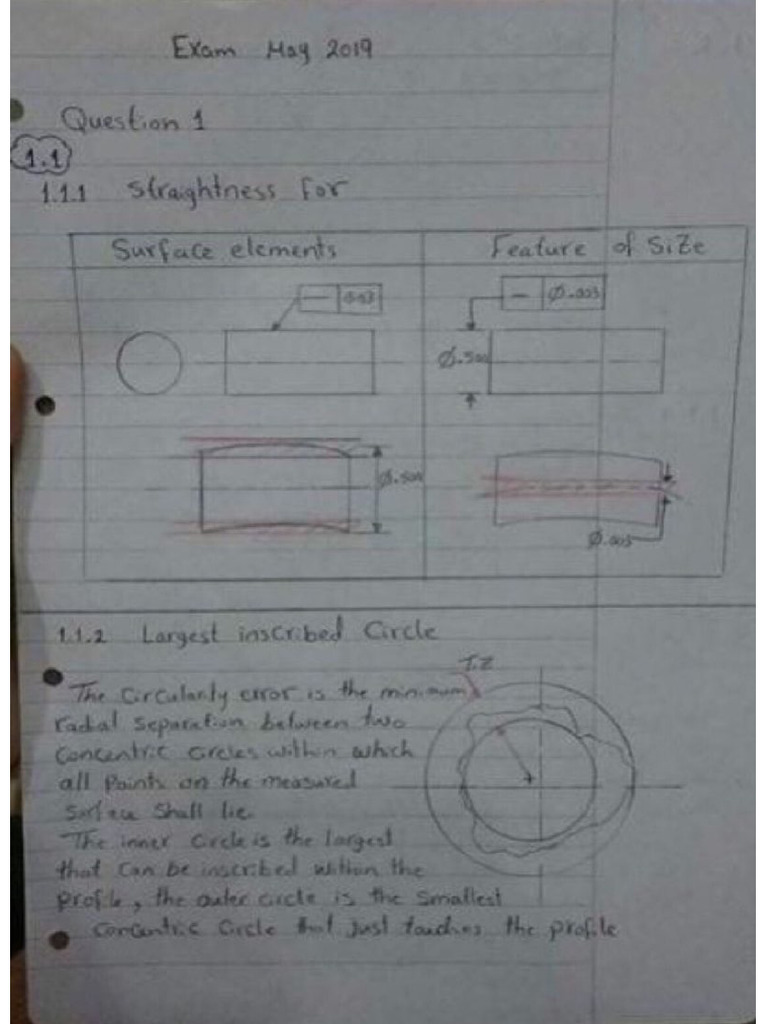 Exam May 2019
Question 1
1.1
1.1.1 Straightness for
Surface elements
Feature of Size
Ø.003
Ø.500
Ø.500
Ø.003
1.1.2 Largest inscribed Circle
T.Z
The Circularity error is the minimum
radial separation between two
Concentric circles within which
all Points on the measured
Surface Shall lie.
The inner circle is the largest
that Can be inscribed within the
profile, the outer circle is the Smallest
Concentric Circle that just touches the profile